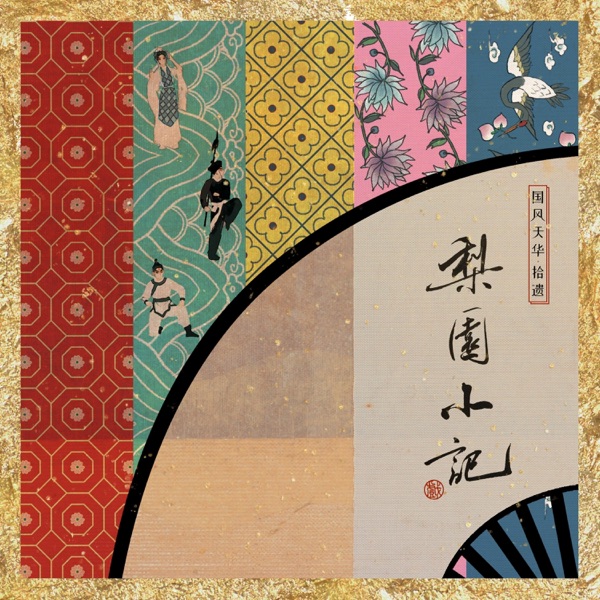 国风天华·拾遗
梨園小記